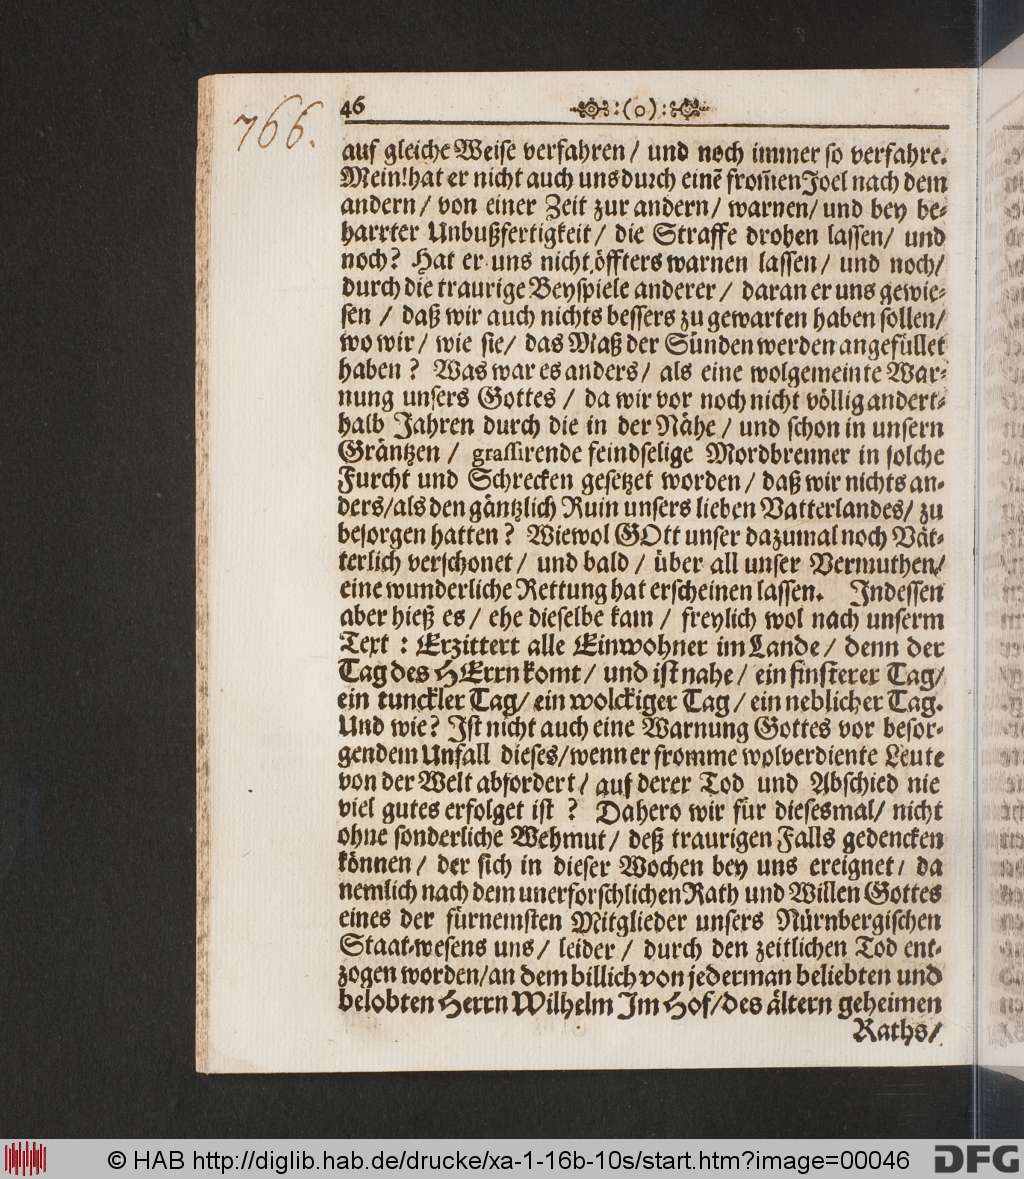 766.
46 :(o):
auf gleiche Weiſe verfahren / und noch immer ſo verfahre.
Mein! hat er nicht auch uns durch einē from̃en Joel nach dem
andern / von einer Zeit zur andern / warnen / und bey be-
harrter Unbußfertigkeit / die Straffe drohen laſſen / und
noch? Hat er uns nicht öffters warnen laſſen / und noch /
durch die traurige Beyſpiele anderer / daran er uns gewie-
ſen / daß wir auch nichts beſſers zu gewarten haben ſollen /
wo wir / wie ſie / das Maß der Sünden werden angefüllet
haben ? Was war es anders / als eine wolgemeinte War-
nung unſers Gottes / da wir vor noch nicht völlig andert-
halb Jahren durch die in der Nähe / und ſchon in unſern
Gräntzen / graſſirende feindſelige Mordbrenner in ſolche
Furcht und Schrecken geſetzet worden / daß wir nichts an-
ders / als den gäntzlich Ruin unſers lieben Vatterlandes / zu
beſorgen hatten ? Wiewol GOtt unſer dazumal noch Vät-
terlich verſchonet / und bald / über all unſer Vermuthen /
eine wunderliche Rettung hat erſcheinen laſſen. Indeſſen
aber hieß es / ehe dieſelbe kam / freylich wol nach unſerm
Text : Erzittert alle Einwohner im Lande / denn der
Tag des HErrn komt / und iſt nahe / ein finſterer Tag /
ein tunckler Tag / ein wolckiger Tag / ein neblicher Tag.
Und wie? Iſt nicht auch eine Warnung Gottes vor beſor-
gendem Unfall dieſes / wenn er fromme wolverdiente Leute
von der Welt abfordert / auf derer Tod und Abſchied nie
viel gutes erfolget iſt ? Dahero wir für dieſesmal / nicht
ohne ſonderliche Wehmut / deß traurigen Falls gedencken
können / der ſich in dieſer Wochen bey uns ereignet / da
nemlich nach dem unerforſchlichen Rath und Willen Gottes
eines der fürnemſten Mitglieder unſers Nürnbergiſchen
Staat-weſens uns / leider / durch den zeitlichen Tod ent-
zogen worden / an dem billich von jederman beliebten und
belobten Herrn Wilhelm Im Hof / des ältern geheimen
Raths /
© HAB http://diglib.hab.de/drucke/xa-1-16b-10s/start.htm?image=00046
DFG